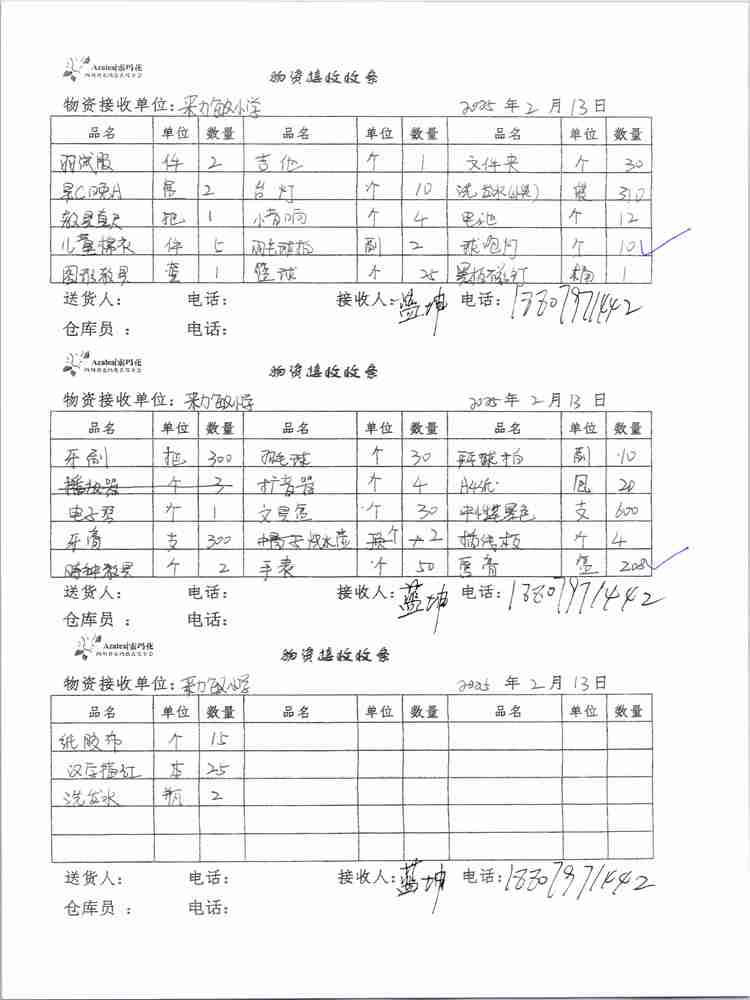 Azalea|索玛花
物资接收收条
物资接收单位: 小学 2025 年 2 月 13 日
品名 单位 数量 品名 单位 数量 品名 单位 数量
件 2 吉他 个 1 文件夹 个 30
2 台灯 个 10 洗发水 袋 310
教具 把 1 小音响 个 4 电池 个 12
儿童棉衣 件 5 羽毛球拍 副 2 球泡灯 个 10
图形教具 套 1 篮球 个 25 黑板磁钉 桶 1
送货人: 电话: 接收人: 蓝坤 电话: 13307971442
仓库员 : 电话:
Azalea|索玛花
物资接收收条
物资接收单位: 小学 2025 年 2 月 13 日
品名 单位 数量 品名 单位 数量 品名 单位 数量
牙刷 把 300 羽毛球 个 30 球拍 副 10
播放器 个 3 扩音器 个 4 A4纸 20
电子琴 个 1 文具盒 个 30 中性笔黑色 支 600
牙膏 支 300 个 2 个 4
时钟教具 个 2 手表 个 50 盒 208
送货人: 电话: 接收人: 蓝坤 电话: 13307971442
仓库员 : 电话:
Azalea|索玛花
物资接收收条
物资接收单位: 小学 2025 年 2 月 13 日
品名 单位 数量 品名 单位 数量 品名 单位 数量
纸胶布 个 15
汉字描红 本 25
洗发水 瓶 2
送货人: 电话: 接收人: 蓝坤 电话: 13307971442
仓库员 : 电话: